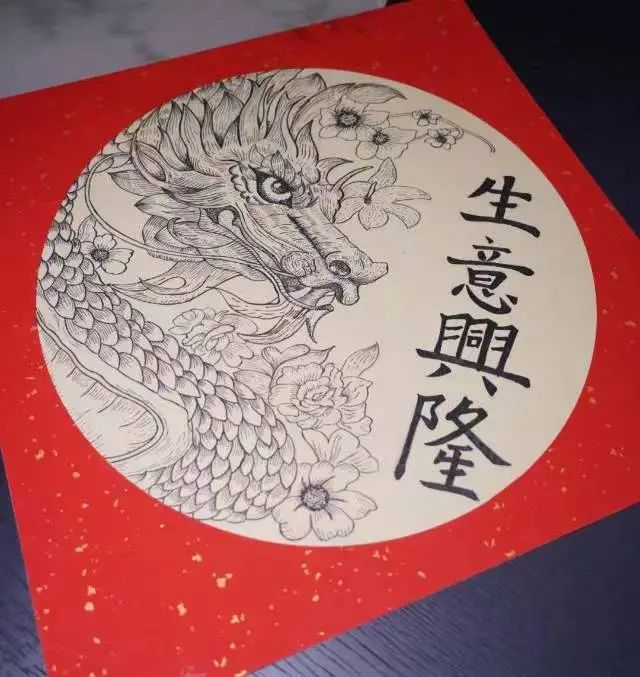 生意興隆